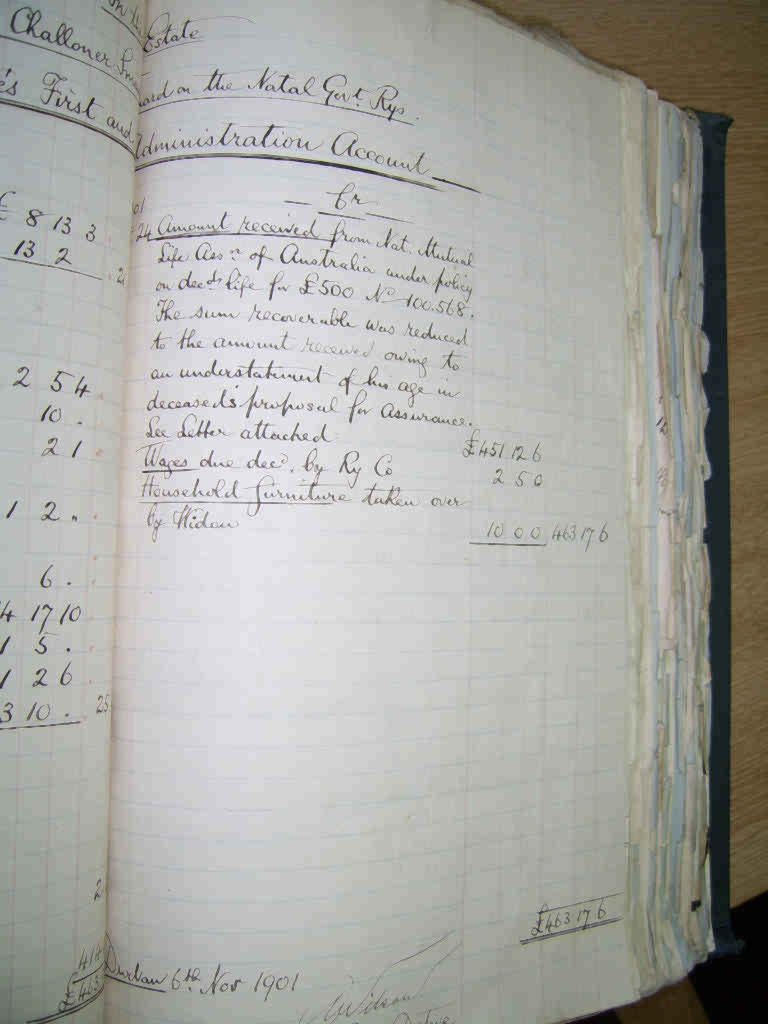 Challoner
's First and
£ 8 13 3
13 2
2 5 4
10 .
2 1
1 2 "
6 .
4 17 10
1 5 .
1 2 6
3 10 . 25
2
414
£463
Estate
on the Natal Govt. Rys.
Administration Account
Cr
01
24 Amount received from Nat. Mutual
Life Assn. of Australia under policy
on decds. life for £500 No 100.568.
The sum recoverable was reduced
to the amount received owing to
an understatement of his age in
deceased's proposal for assurance.
See Letter attached £451 12 6
Wages due decd. by Ry Co 2 5 0
Household furniture taken over
by Widow 10 0 0 463 17 6
£463 17 6
Durban 6th Nov 1901
Wilson